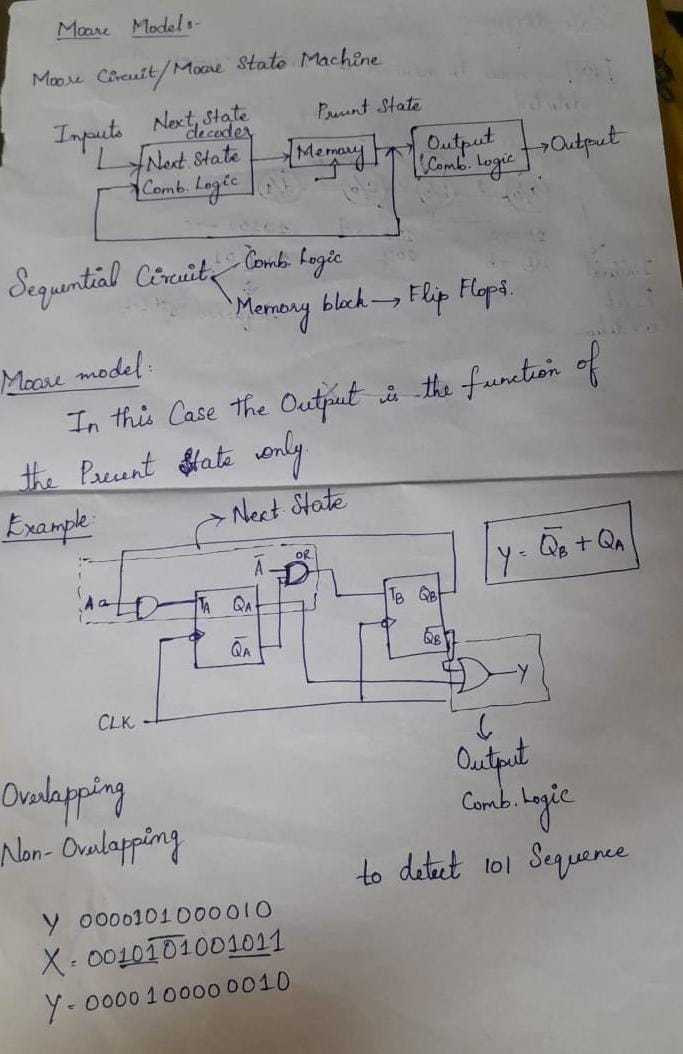 Moore Model:-
Moore Circuit/Moore State Machine
Inputs
Next State
decoder
Present State
Next State
Comb. Logic
Memory
Output
Comb. Logic
Output
Sequential Circuit
Comb. Logic
Memory block → Flip Flops.
Moore model:
In this Case the Output is the function of
the Present State only.
Example:
Next State
Y = Q̅B + QA
A
A̅
OR
TA QA
Q̅A
TB QB
Q̅B
Y
CLK
Output
Comb. Logic
Overlapping
Non-Overlapping
to detect 101 Sequence
Y 0000101000010
X = 0010101001011
Y = 0000100000010